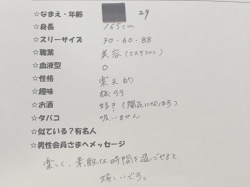 ☆なまえ・年齢 29
☆身長 165cm
☆スリーサイズ 90-60-88
☆職業 美容(エステサロン)
☆血液型 O
☆性格 楽天的
☆趣味 旅行
☆お酒 好き!(陽気になります)
☆タバコ 吸いません
☆似ている?有名人
☆男性会員さまへメッセージ
楽しく、素敵な時間を過ごせると
嬉しいです。